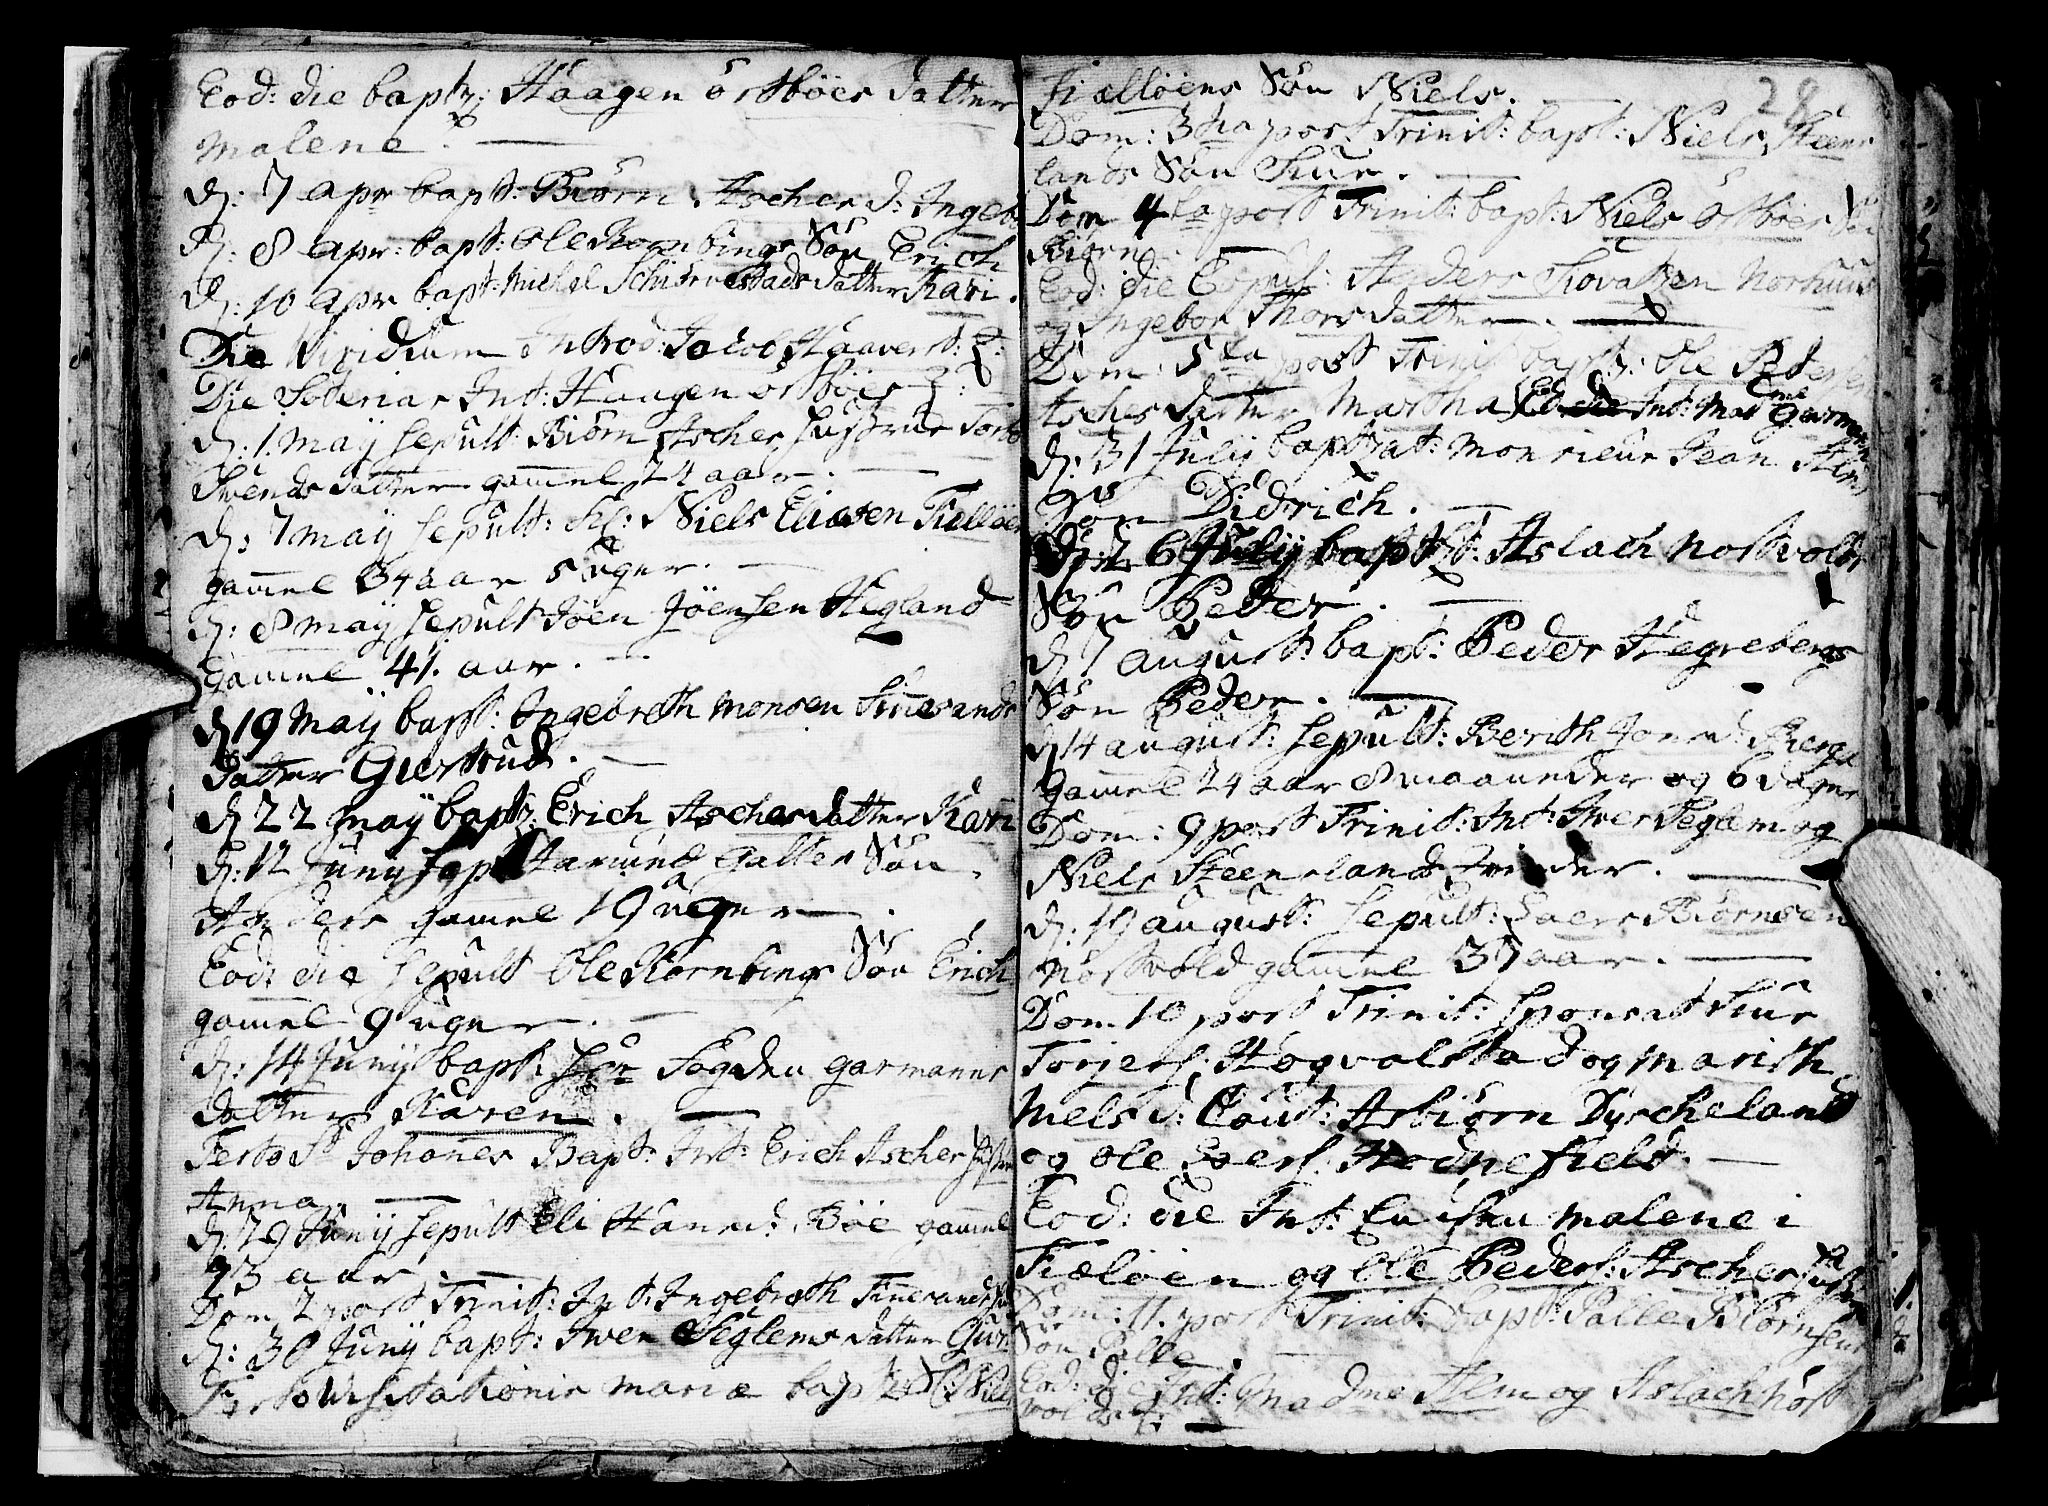 Eod: die baptz: Haagen östböes datter
Malene. —
d: 7 apr bapt: Biörn Aschers d: Ingeb
d: 8 apr: bapt: Ole Kornbings Sön Erich
d: 10 apr bapt: Michel Schiörvestads datter Kari.
Die Viridium Introd: Jacob Haaverst:
Die Soteriar Int: Haagen östböes
d: 1 may sepult: Biörn Aschers hustrue Torb
Svends datter gammel 24 aar. —
d: 7 may sepult: Sl: Niels Eliasen Fielløe
gammel 34 aar 5 uger. —
d: 8 may sepult Joen Jöensen Hegland
gammel 41. aar. —
d 19 May bapt: Ingebreth Monsen Finesands
datter Giertrud. —
d 22 may baptz: Erich Aschers datter Kari
d: 12 Juny sep: Aamund Galtes Sön
Anders gammel 19 uger —.
Eod: die sepult Ole Kornbings Sön Erich
gammel 9 uger. —
d: 14 Juny bapt: Hr Fogden Garmanns
datter Karen. —
Festo St Johannes Bapt: Int: Erich Aschers hustr
Anna. —
d: 29 Juny sepult Eli Hansd: Böe gammel
73 aar. —
Dom 2 post Trinit: Int: Ingebreth Finesands
d: 30 Juny bapt: Iwer Seglems datter Guri
Festo Visitationis mariæ baptz: Niels
28
Fiælløens Sön Niels.
Dom: 3tia post Trinit: bapt: Niels Steens
lands Sön Siur. —
Dom 4ta post Trinit: bapt: Niels östböes Sön
Biörn. —
Eod: die Copul: Anders Siovatsen Norhuus
og Ingebor Thorsdatter. —
Dom: 5ta post Trinit baptz: Ole Peders
Aschers datter Martha Eod die Int: Mad Garmann
d: 31 July baptizat: Monsieur Jean Alms
Sön Didrich. —
d: 26 July baptzt: Aslach Nostvolds
Sön Peder. —
d 7 august: bapt: Peder Hegrebergs
Sön Peder. —
d 14 august: sepult: Berith Jonsd: Berge
gammel 24 aar 8 maaneder og 6 dager
Dom: 9 post Trinit: Int: Iwer Seglem og
Niels Steenslands Qvinder. —
d: 19 august: sepult: Laers Biörnsen
Nostvold gammel 37 aar. —
Dom 10 post Trinit: sponsat Siur
Torjers: Hogvalstad og Marith
Niels d: Caut: Asbiörn Dyrcheland
og Ole Hodnefield. —
Eod: die Int: Enchen Malene i
Fiæløen og Ole Peders: Aschers hustru
Dom: 11. post Trinit: bapt: Palle Biörnsens
Sön Palle. —
Eod: die Int: Madme Alm og Aslach Nost
volds